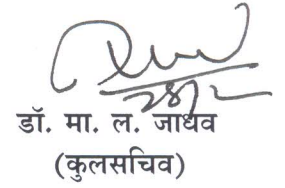 डॉ. मा. ल. जाधव
(कुलसचिव)